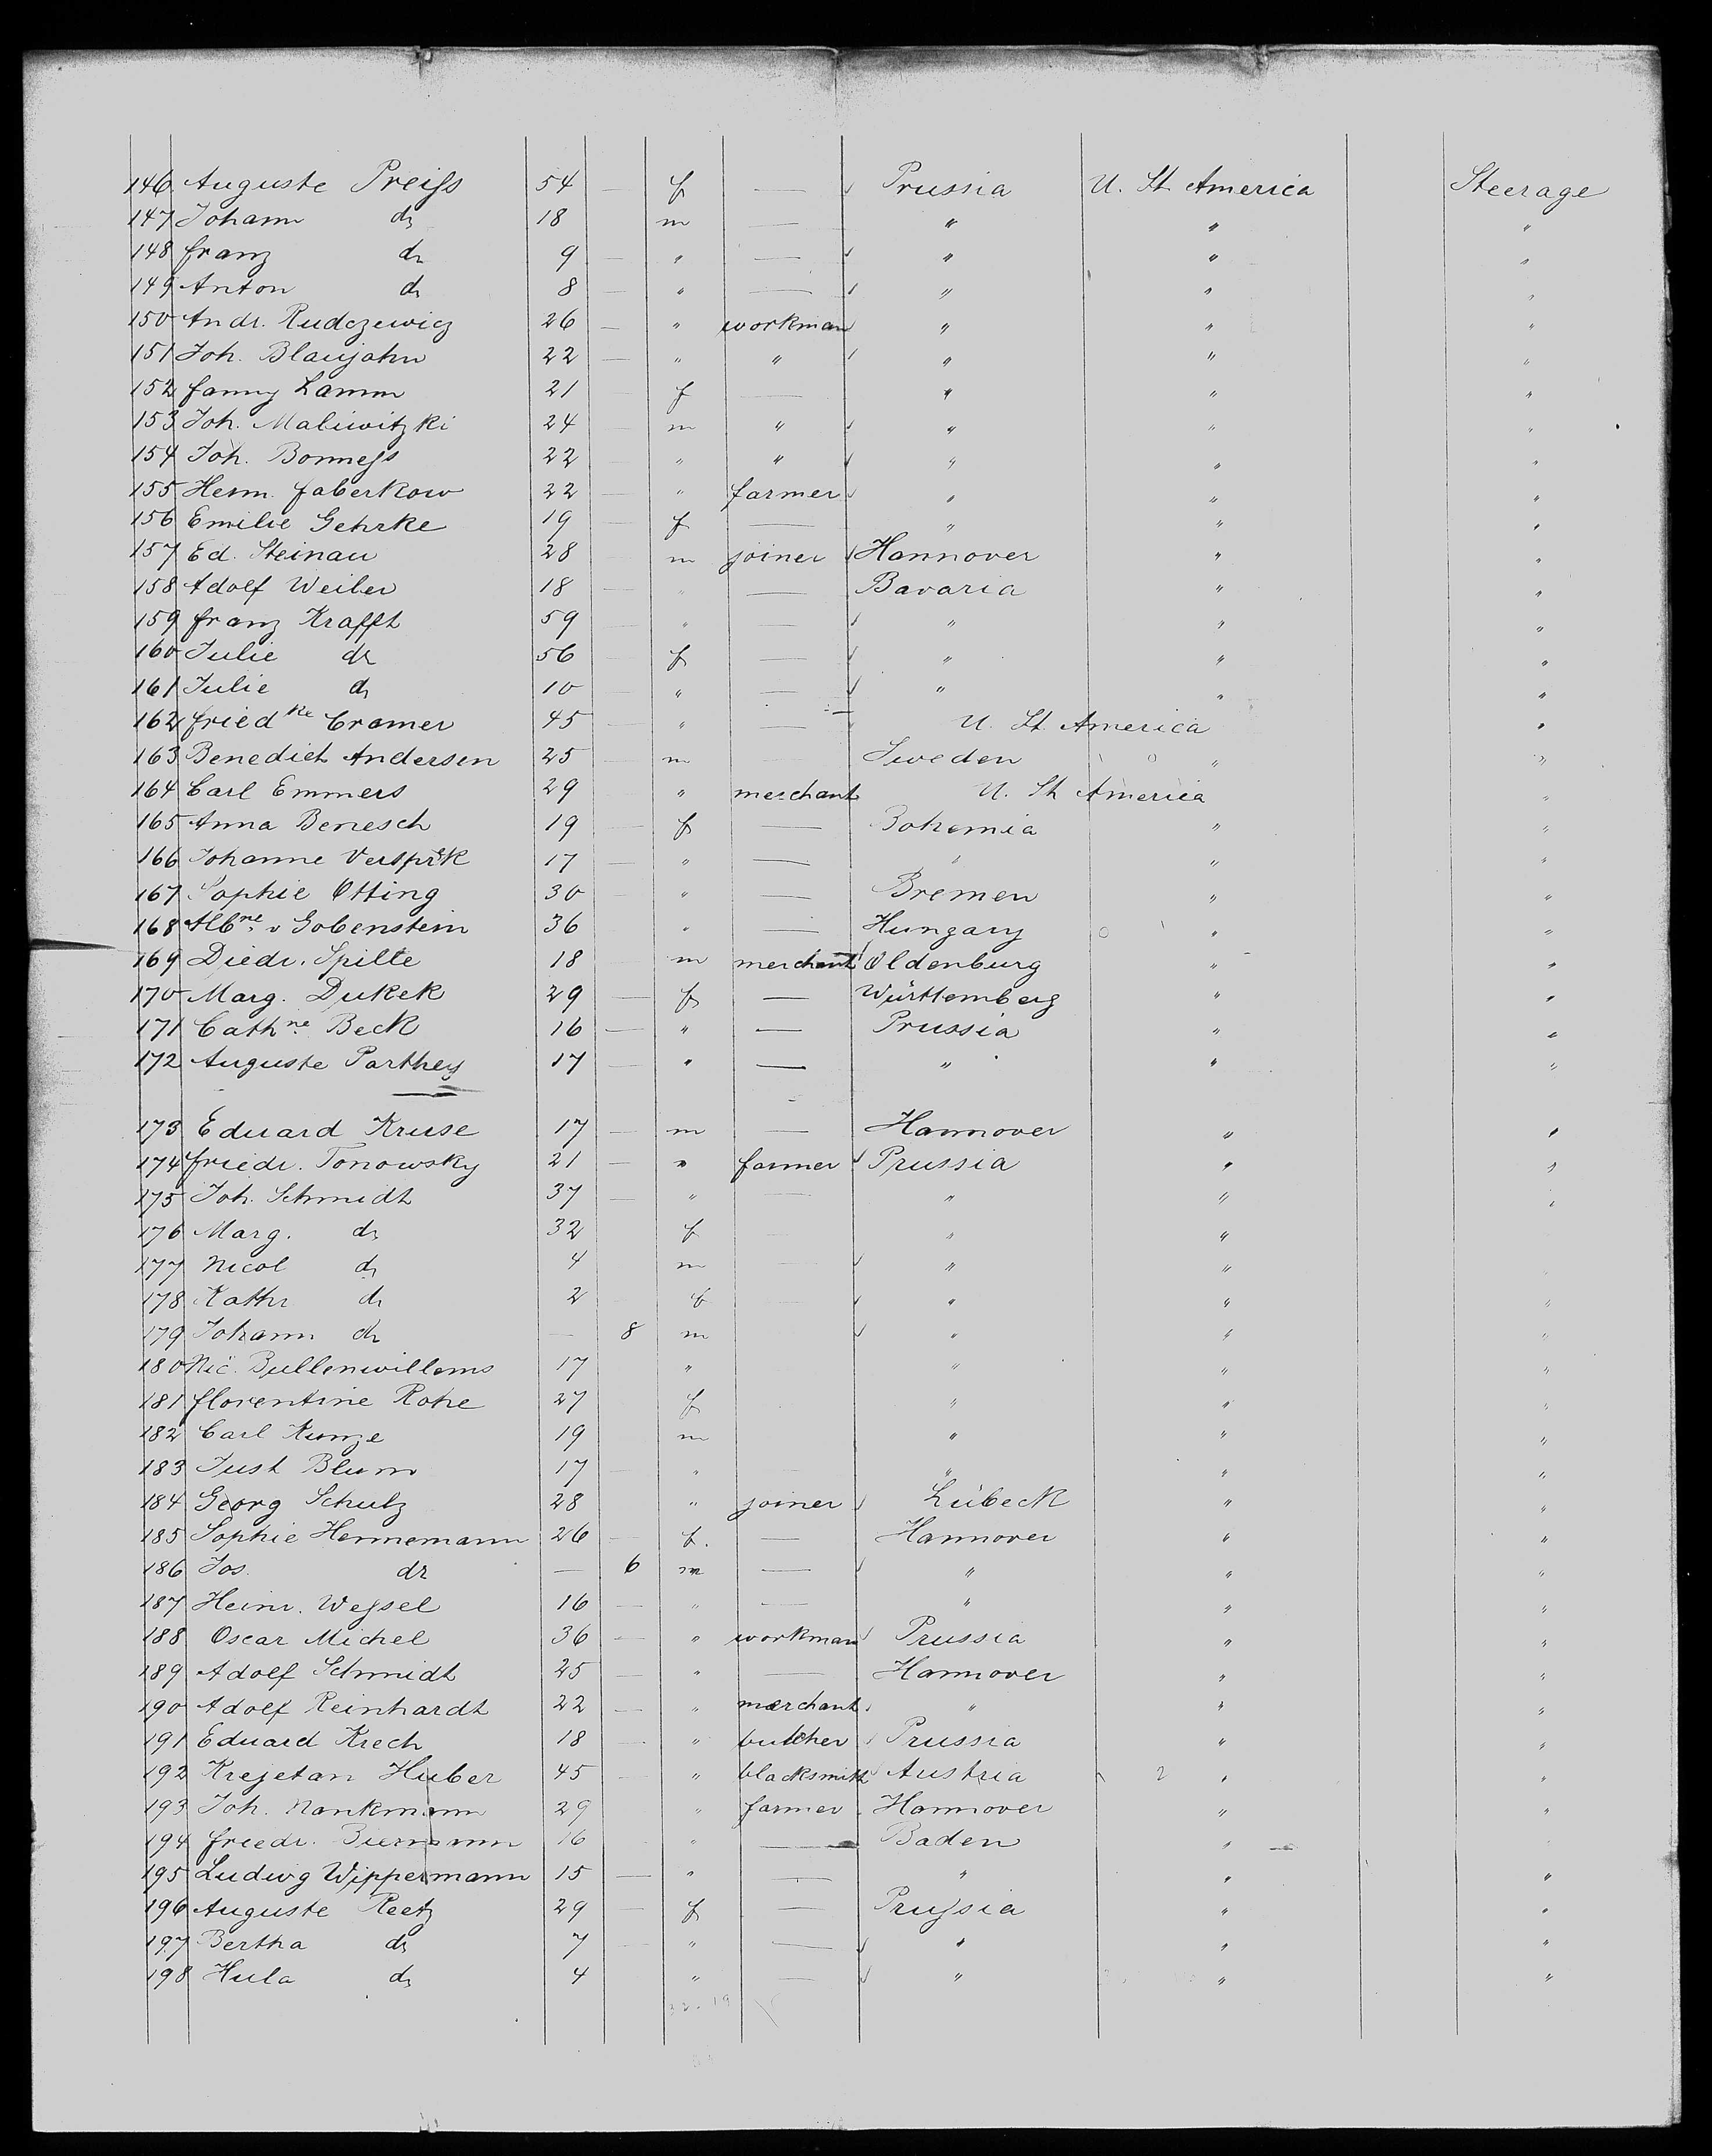 146 Auguste Preiſs 54 — f — Prussia U. St. America Steerage
147 Johann do 18 m — " " "
148 Franz do 9 — " — " " "
149 Anton do 8 — " — " " "
150 Andr. Rudczewicz 26 — " workman " " "
151 Joh. Blaujahn 22 — " " " " "
152 Fanny Lamm 21 f — " " "
153 Joh. Maliwitzki 24 m " " " "
154 Joh. Bonneſs 22 " " " " "
155 Herm. Faberkow 22 — " farmer " " "
156 Emilie Gehrke 19 f — " " "
157 Ed. Steinau 28 m joiner Hannover " "
158 Adolf Weiler 18 — " — Bavaria " "
159 Franz Krafft 59 — " — " " "
160 Julie do 56 f — " " "
161 Julie do 10 " — " " "
162 Friedke Cramer 45 " — U. St. America "
163 Benedict Andersen 25 m Sweden " "
164 Carl Emmers 29 " merchant U. St. America "
165 Anna Benesch 19 — f — Bohemia " "
166 Johanne 17 — " — " " "
167 Sophie Otting 30 " — Bremen " "
168 Albne v Gobenstein 36 " — Hungary " "
169 Diedr. Spilte 18 m merchant Oldenburg " "
170 Marg. Dukek 29 — f — Württemberg " "
171 Cathne Beck 16 — " — Prussia " "
172 Auguste Parthey 17 — " — " " "
173 Eduard Kruse 17 — m — Hannover " "
174 Friedr. Tonowsky 21 — " farmer Prussia " "
175 Joh. Schmidt 37 — " — " " "
176 Marg. do 32 f " "
177 Nicol do 4 m " "
178 Kathr do 2 f " " "
179 Johann do — 8 m " " "
180 Nic. Bullenwillems 17 " " " "
181 Florentine Rohe 27 f " " "
182 Carl Kunze 19 m " " "
183 Just Blum 17 " " " "
184 Georg Schulz 28 " joiner Lübeck " "
185 Sophie Hennemann 26 f. — Hannover " "
186 Jos. do — 6 m — " " "
187 Heinr. Weſsel 16 — " — " " "
188 Oscar Michel 36 — " workman Prussia " "
189 Adolf Schmidt 25 — " — Hannover " "
190 Adolf Reinhardt 22 — " merchant " " "
191 Eduard Krech 18 — " butcher Prussia " "
192 Krejetan Huber 45 — " blacksmith Austria 2 " "
193 Joh. Nankmann 29 " farmer Hannover " "
194 Friedr. 16 " — Baden "
195 Ludwig Wippermann 15 — " — " " "
196 Auguste Reetz 29 — f — Pruſsia " "
197 Bertha do 7 — " — " " "
198 Hula do 4 " — " " "